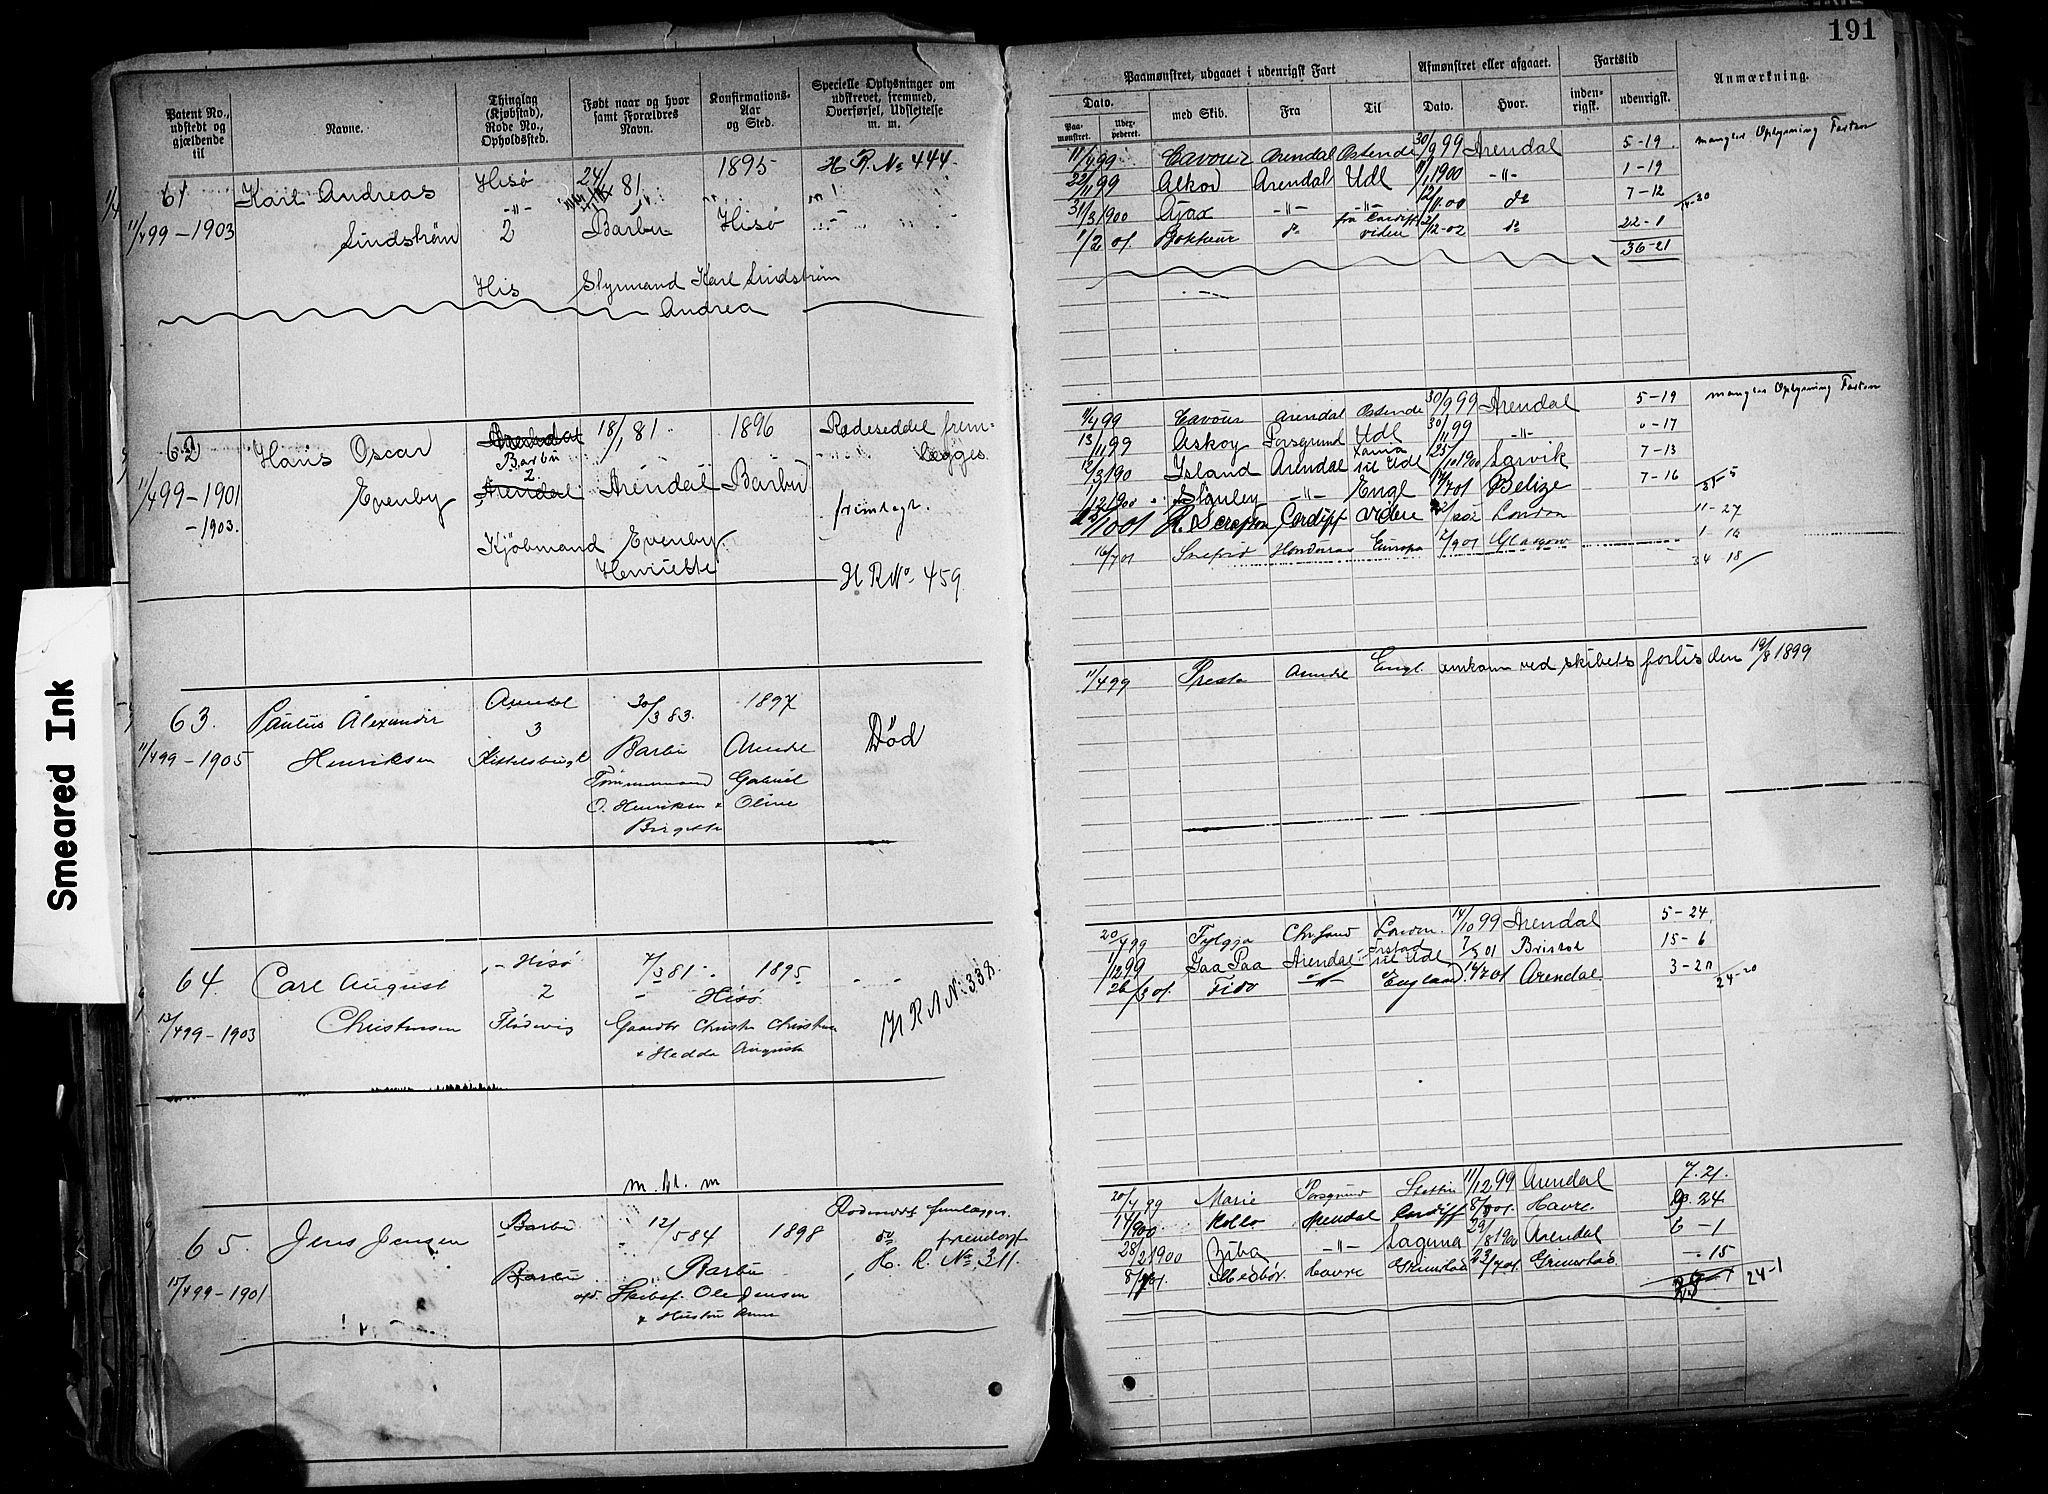 191
Patent No., udstedt og gjældende til
Navne.
Thinglag (Kjøbstad), Rode No., Opholdssted.
Født naar og hvor samt Forældres Navn.
Konfirmations-Aar og Sted.
Specielle Oplysninger om udskrevet, fremmed, Overførsel, Udslettelse m. m.
61 Karl Andreas Hisø 24/ 81 1895 H R. No 444.
11/4 99 – 1903 Lindstrøm 2 Barbu Hisø
His Styrmand Karl Lindstrøm
Andrea
62 Hans Oscar Arendal 18/1 81 1896 Rodeseddel frem-
Barbu lægges
2
11/4 99 – 1901 Evenby Arendal Arendal Barbu
– 1903. fremlagt.
Kjøbmand Evenby
Henriette H R No 459
63. Paulus Alexander Arendal 30/3 83. 1897
3 Død
11/4 99 – 1905 Henriksen Kittelsbugt Barbu Arendal
Tømmermand Gabriel
O. Henriksen & Oline
Birgitte
64. Carl August Hisø 7/3 81 1895
2 Hisø H R No 338.
13/4 99 – 1903 Christensen Flødevig
& Hedda Augusta
m. fl. m
65. Jens Jensen Barbu 12/5 84 1898
H. R. No. 311.
15/4 99 – 1901 Barbu Barbu
Ole Jensen
Paamønstret, udgaaet i udenrigsk Fart
Afmønstret eller afgaaet.
Fartstid
Anmærkning.
Dato.
Paamønstret.
med Skib.
Fra
Til
Dato.
Hvor.
indenrigsk.
udenrigsk.
11/4 99 Cavour Arendal Ostende 30/9 99 Arendal 5–19 mangler Oplysning Farten
22/11 99 Alkor Arendal Udl 11/1 1900 –"– 1–19
31/3 1900 Ajax –"– –"– 12/11 00 do 7–12
1/2 01 fra Cardiff videre 21/12–02 do 22–1
36–21
11/4 99 Cavour Arendal Ostende 30/9 99 Arendal 5–19 mangler Oplysning Farten
13/11 99 Askoy Porsgrund Udl 30/11 99 –"– 0–17
12/3 90 Island Arendal til Udl 25/10 1900 Larvik 7–13
1/12 1900 Stanley –"– Engl 17/7 01 Belize 7–16
Cardiff videre London 11–27
16/7 01 Honduras Europa 1/9 01 Glasgow 1–16
34–18
11/4 99 Presto Arendal Engl. omkom ved skibets forlis den 19/8 1899
20/4 99 Fylgja London 14/10 99 Arendal 5–24
1/12 99 Gaa Paa Arendal til Udl 7/3 01 Bristol 15–6
26/3 01. Fido –"– England 14/7 01 Arendal 3–20 24–20
20/4 99 Marie Porsgrund Stettin 11/12 99 Arendal 7.21.
Rollo Arendal Cardiff Havre. 9.24
28/2 1900 Ziba –"– Laguna 29/8 1900 Arendal 6–1
Havre Grimstad 23/7 01. Grimstad –15
24–1
Smeared Ink